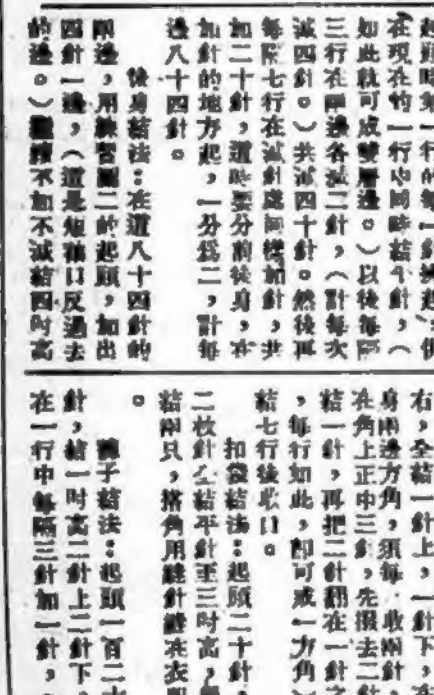 起頭時第一行的每一針挑起，併
在現在的一行內同時結平針，（
如此就可成雙層邊。）以後每隔
三行在兩邊各減二針，（計每次
減四針。）共減四十針。然後再
每隔七行在減針處同樣加針，共
加二十針，這時要分前後身，在
加針的地方起，一分爲二，計每
邊八十四針。
後身結法：在這八十四針的
兩邊，用練習圖二的起頭，加出
四針一邊，（這是短袖口反過去
的邊。）繼續不加不減結四吋高
右，全結一針上，一針下，在
身兩邊方角，須每一收兩針
在角上正中三針，先撥去二針
結一針，再把二針翻在一針之
，每行如此，卽可成一方角）
結七行後收口。
扣袋結法：起頭二十針，
二枚針全結平針至三吋高，
結兩只，搭角用縫針縫在衣
。
褲子結法：起頭一百二十
針，結一吋高二針上二針下，
在一行中每隔三針加一針，